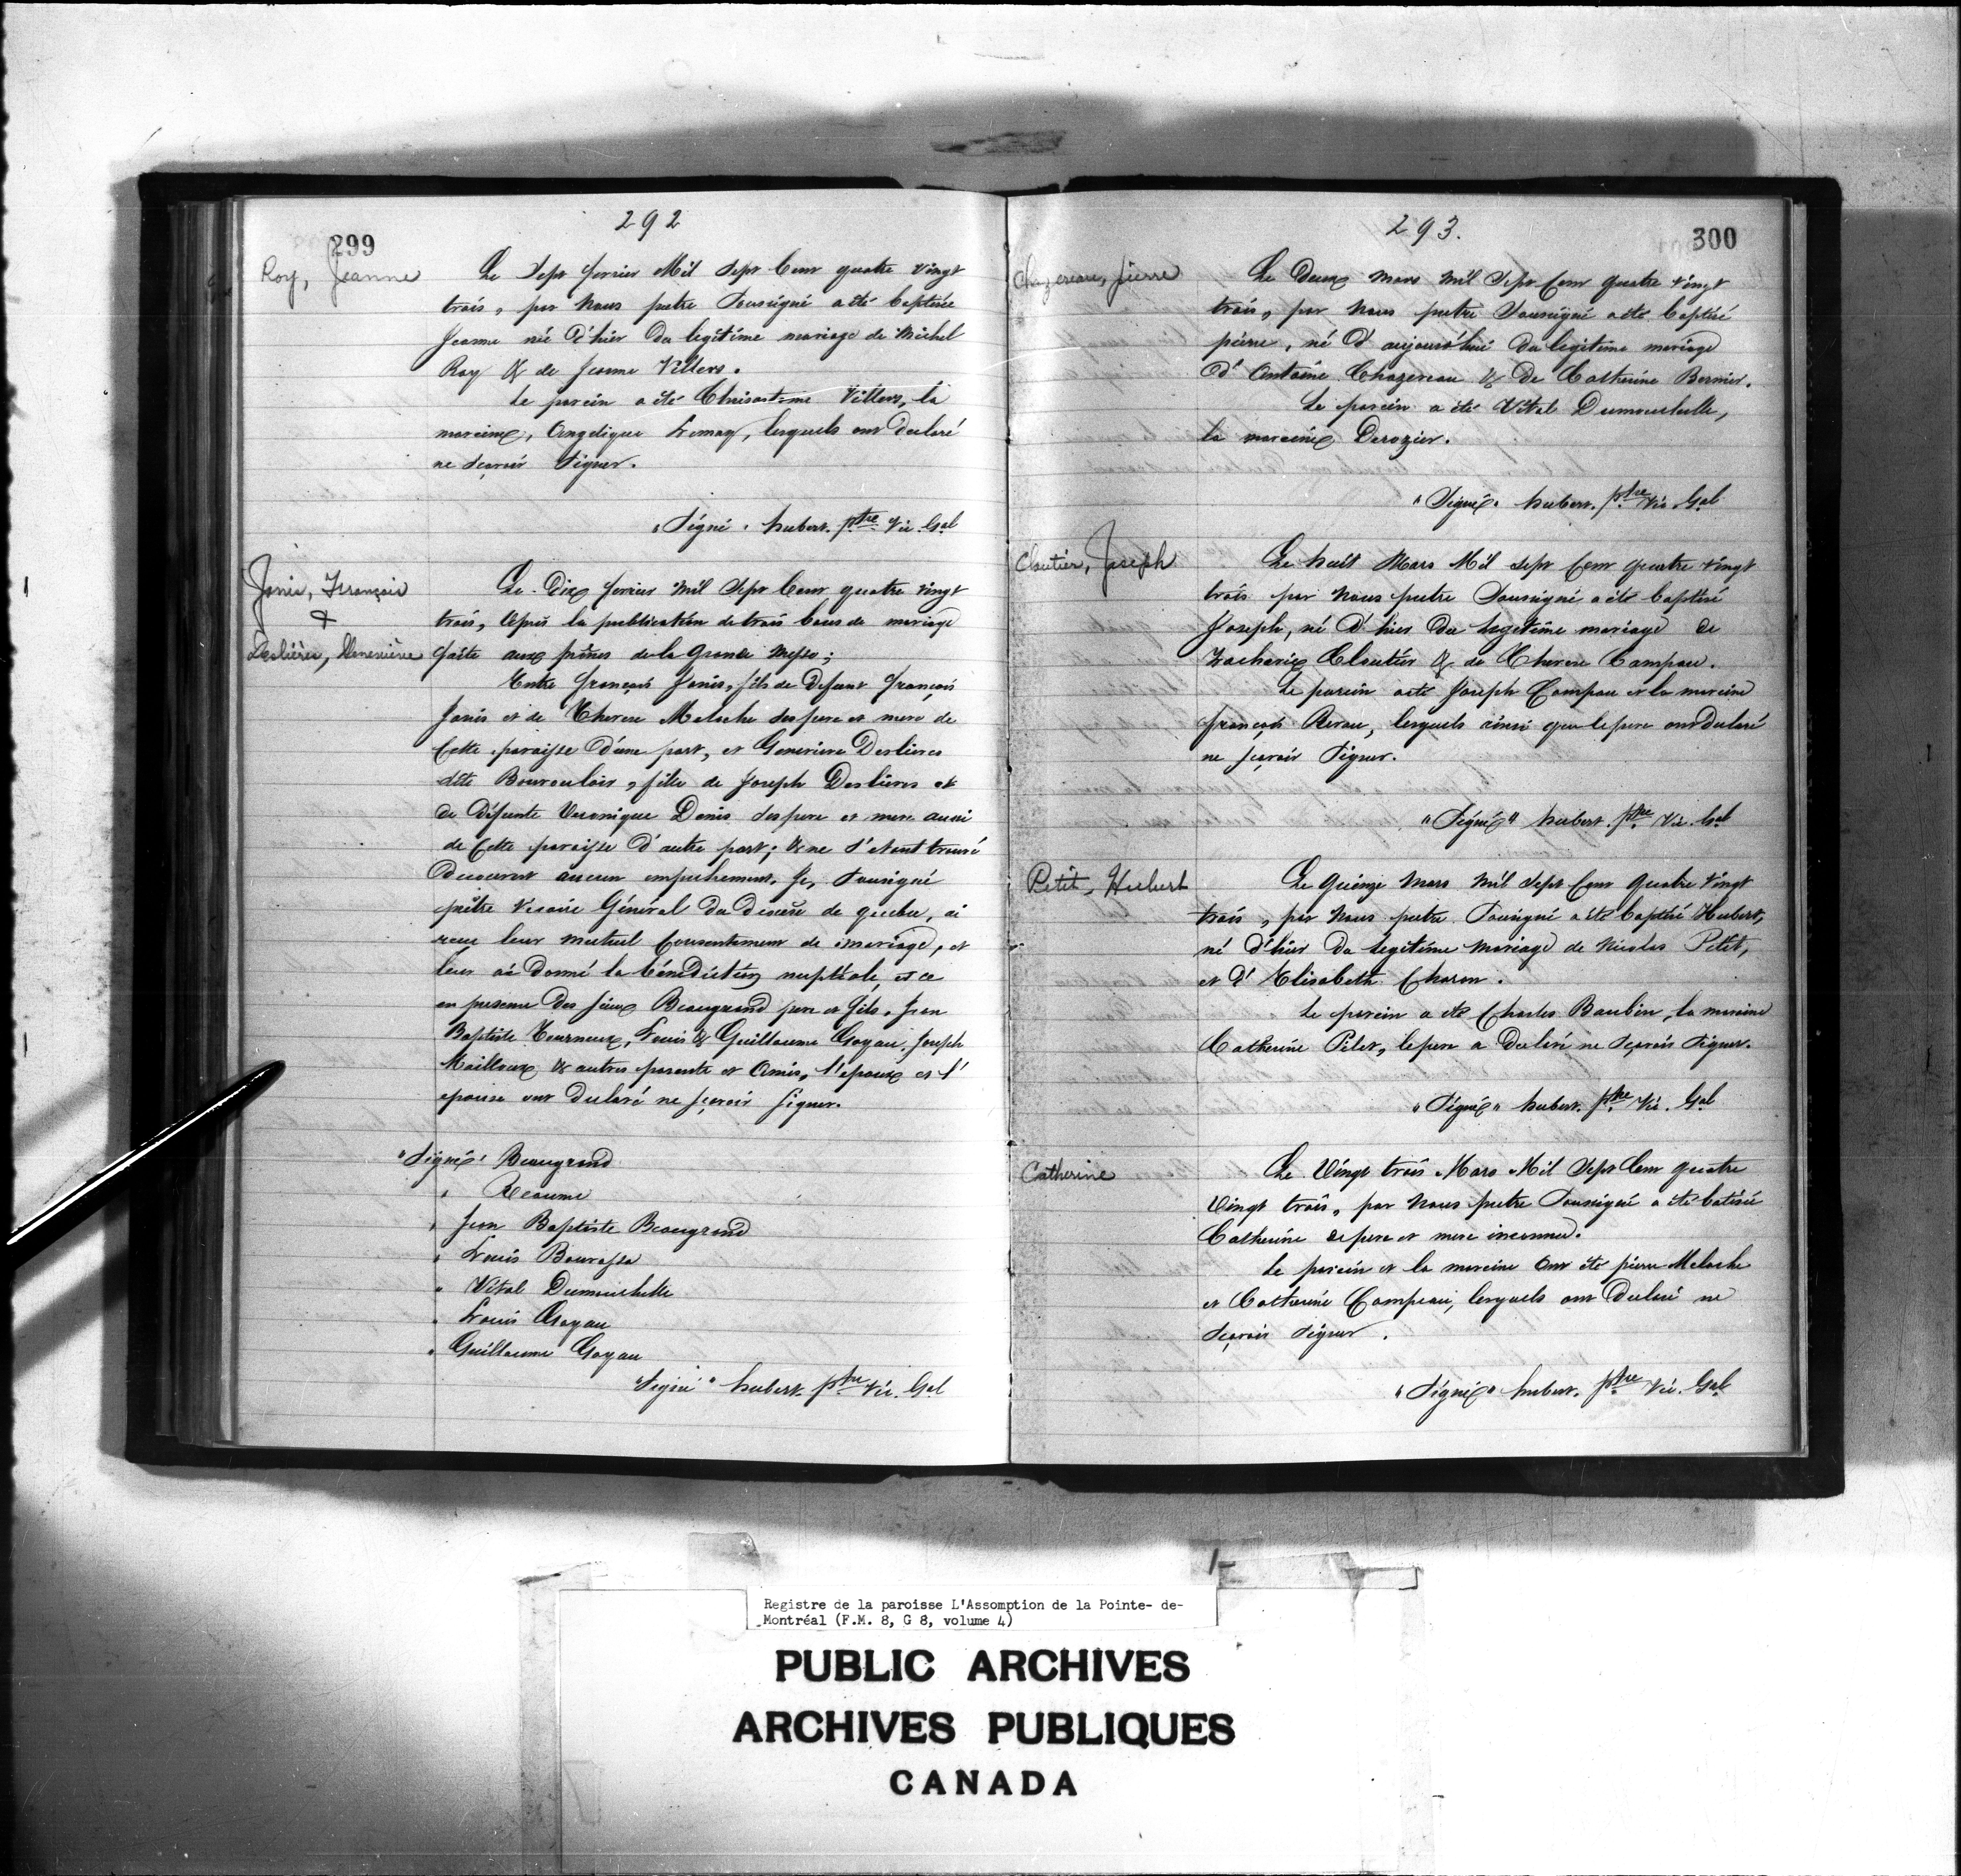 292
299
Roy, Jeanne
Le Sept fevrier Mil Sept Cent quatre vingt
trois, par Nous pretre Soussigné a été baptisée
Jeanne née d'hier du legitime mariage de Michel
Roy & de Jeanne Villers.
Le parein a été Villers, la
mareine, Angelique Lemay, lesquels ont declaré
ne sçavoir Signer.
"Signé" hubert. ptre Vic. Gal
Janis, François
&
Deslières, Genevière
Le Dix fevrier Mil Sept Cent quatre vingt
trois, après la publication de trois bans de mariage
faite aux prônes de la Grande Messe;
Entre françois Janis, fils de Defunt françois
Janis et de Therese Meloche ses pere et mere de
Cette paroisse d'une part, et Genevieve Deslieres
dite Bonvouloir, fille de Joseph Deslieres et
de Défunte Veronique Denis ses pere et mere aussi
de Cette paroisse d'autre part; & ne s'etant trouvé
Decouvert aucun empechement, Je, Soussigné
prêtre Vicaire Général du diocese de quebec, ai
recu leur mutuel Consentement de mariage, et
leur ai donné la bénédiction nuptiale, et ce
en presence des Sieurs Beaugrand pere et fils, Jean
Baptiste Tourneux, Louis & Guillaume Goyau, Joseph
Mailloux & autres parents et Amis, l'epoux et l'
epouse ont declaré ne sçavoir signer.
"Signé" Beaugrand
" Reaume
" Jean Baptiste Beaugrand
" Louis Bourassa
" Vital Dumouchelle
" Louis Goyau
" Guillaume Goyau
"Signé" hubert. ptre Vic. Gal
293.
300
Chazereau, Pierre
Le Deux Mars Mil Sept Cent quatre vingt
trois, par Nous pretre Soussigné a été baptisé
pierre, né d'aujourd'hui du legitime mariage
d'Antoine Chazereau & De Catherine Bernier.
Le parein a été Vital Dumouchelle,
la mareine Derozier.
"Signé" hubert. ptre Vic. Gal
Cloutier, Joseph
Le huit Mars Mil sept Cent quatre vingt
trois par Nous pretre Soussigné a été baptisé
Joseph, né d'hier du legitime mariage de
Zacharie Cloutier & de Therese Campau.
Le parein a été Joseph Campau et la mareine
françois Revau, lesquels ainsi que le pere ont declaré
ne sçavoir Signer.
"Signé" hubert. ptre Vic. Gal
Petit, Hubert
Le Quinze Mars Mil Sept Cent Quatre Vingt
trois, par Nous pretre Soussigné a été baptisé Hubert,
né d'hier du legitime mariage de Nicolas Petit,
et d'Elisabeth Charon.
Le parein a été Charles Baubin, la mareine
Catherine Pilet, le pere a declaré ne sçavoir signer.
"Signé" hubert. ptre Vic. Gal
Catherine
Le Vingt trois Mars Mil Sept Cent quatre
Vingt trois, par Nous pretre Soussigné a été batisée
Catherine de pere et mere inconnus.
Le parein et la mareine Ont été pierre Meloche
et Catherine Campeau, lesquels ont declaré ne
sçavoir signer.
"Signé" hubert. ptre Vic. Gal
Registre de la paroisse L'Assomption de la Pointe- de-
Montréal (F.M. 8, G 8, volume 4)
PUBLIC ARCHIVES
ARCHIVES PUBLIQUES
CANADA